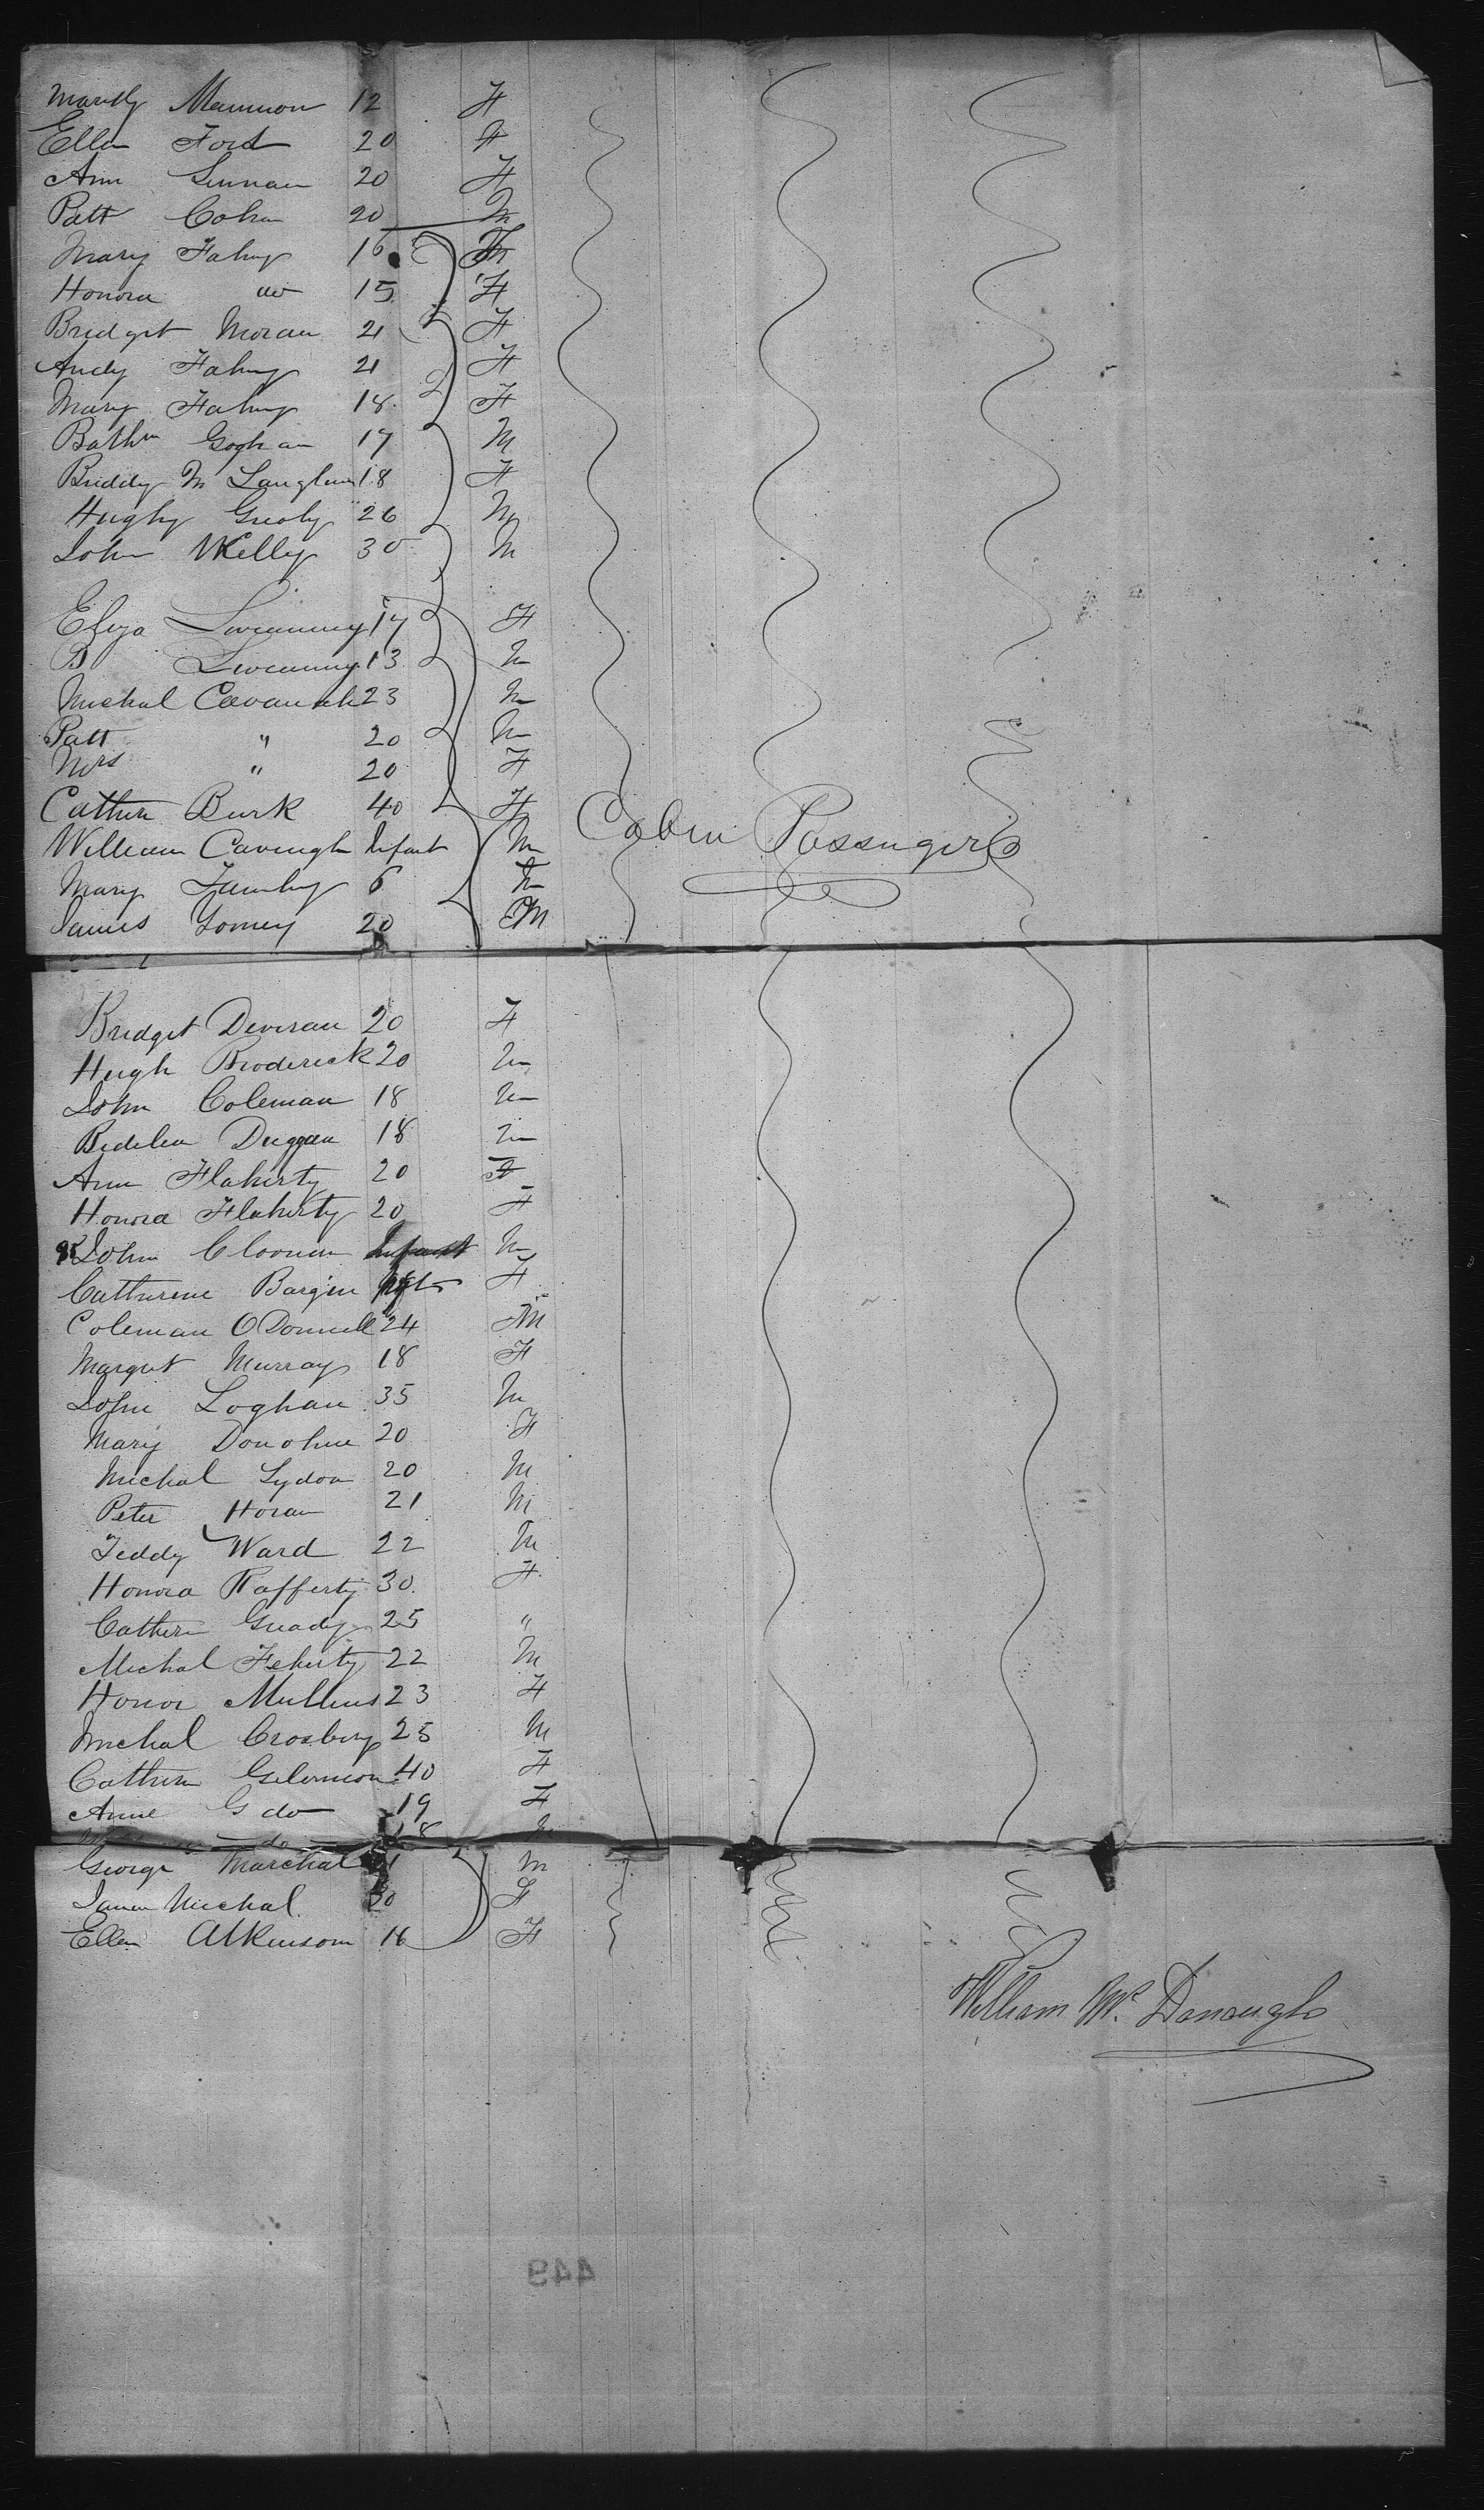 Mannion 12 F
Ellen Ford 20 F
Ann 20 F
Patt Cohen 20 M
Mary Fahey 16
Honora do 15 F
Bridget Moran 21 F
Andy Fahey 21 F
Mary Fahey 18 F
Goghan 19 M
Briddy Mc Laughlin 18 F
Hughy Grealy 26 M
John Kelly 30 M
Eliza Sweeney 17 F
B Sweeney 13 M
Michal Cavanah 23 M
Patt " 20 M
Mrs " 20 F
Cathern Burk 40 F
William Cavengh Infant M
Cabin Passengers
Mary 6
James Tomey 20 M
Bridget Deveran 20 F
Hugh Broderick 20 M
John Coleman 18 M
Bedelia Duggan 18 M
Ann Flaherty 20 F
Honora Flaherty 20 F
John Cloonen Infant M
Catherine Bargin F
Coleman ODonnell 24 M
Margret Murray 18 F
John Loghan 35 M
Mary Donohue 20 F
Michal Lydon 20 M
Peter Horan 21 M
Teddy Ward 22 M
Honora Rafferty 30 F
Cathern Gready 25 "
Michal Feherty 22 M
Honor Mullins 23 F
Michal Crosbery 25 M
Cathern 40 F
Anne G do 19 F
do 18 M
George Marchal M
Michal 30 F
Ellen Atkinson 16 F
William Mc. Donough
449